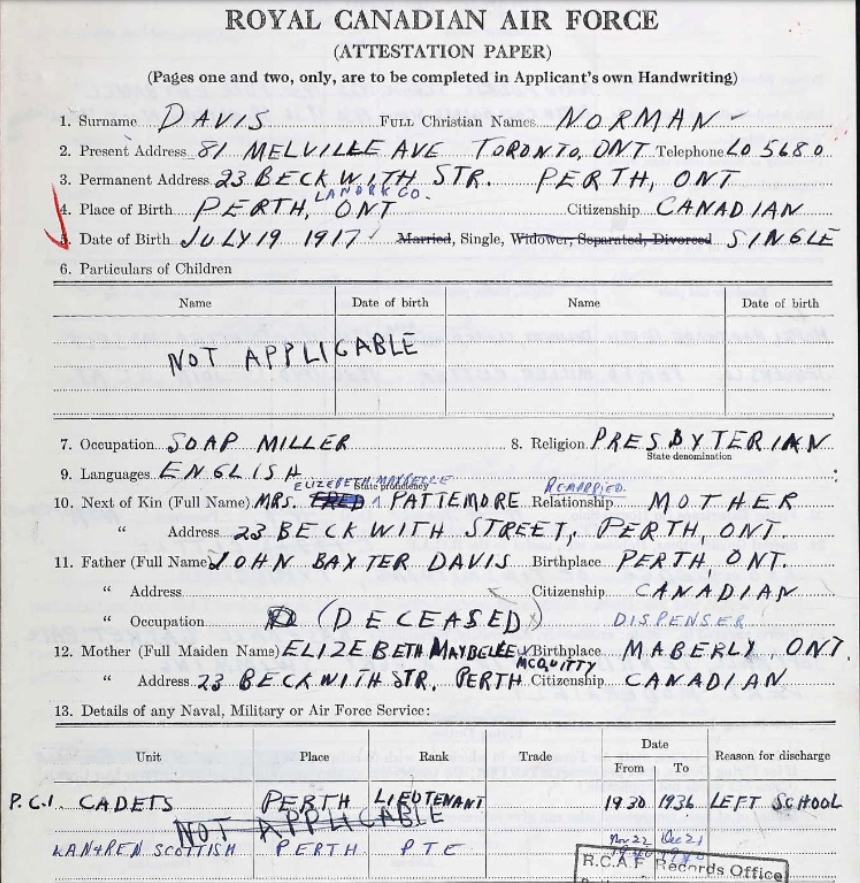 ROYAL CANADIAN AIR FORCE
(ATTESTATION PAPER)
(Pages one and two, only, are to be completed in Applicant's own Handwriting)
1. Surname DAVIS FULL Christian Names NORMAN
2. Present Address 81 MELVILLE AVE TORONTO, ONT Telephone LO 5680
3. Permanent Address 23 BECKWITH STR. PERTH, ONT
LANARK CO.
4. Place of Birth PERTH, ONT Citizenship CANADIAN
5. Date of Birth JULY 19 1917 Married, Single, Widower, Separated, Divorced SINGLE
6. Particulars of Children
Name Date of birth Name Date of birth
NOT APPLICABLE
7. Occupation SOAP MILLER 8. Religion PRESBYTERIAN
State denomination
9. Languages ENGLISH
State proficiency
ELIZEBETH MAYBELLE REMARRIED
10. Next of Kin (Full Name) MRS. FRED PATTEMORE Relationship MOTHER
" Address 23 BECKWITH STREET, PERTH, ONT.
11. Father (Full Name) JOHN BAXTER DAVIS Birthplace PERTH, ONT.
" Address Citizenship CANADIAN
" Occupation (DECEASED) DISPENSER
12. Mother (Full Maiden Name) ELIZEBETH MAYBELLE Birthplace MABERLY ONT.
MCQUITTY
" Address 23 BECKWITH STR. PERTH Citizenship CANADIAN
13. Details of any Naval, Military or Air Force Service:
Unit Place Rank Trade Date Reason for discharge
From To
P.C.I. CADETS PERTH LIEUTENANT 1930 1936 LEFT SCHOOL
NOT APPLICABLE
Nov 22 Dec 21
LAN & REN SCOTTISH PERTH PTE 1940 1940
R.C.A.F Records Office